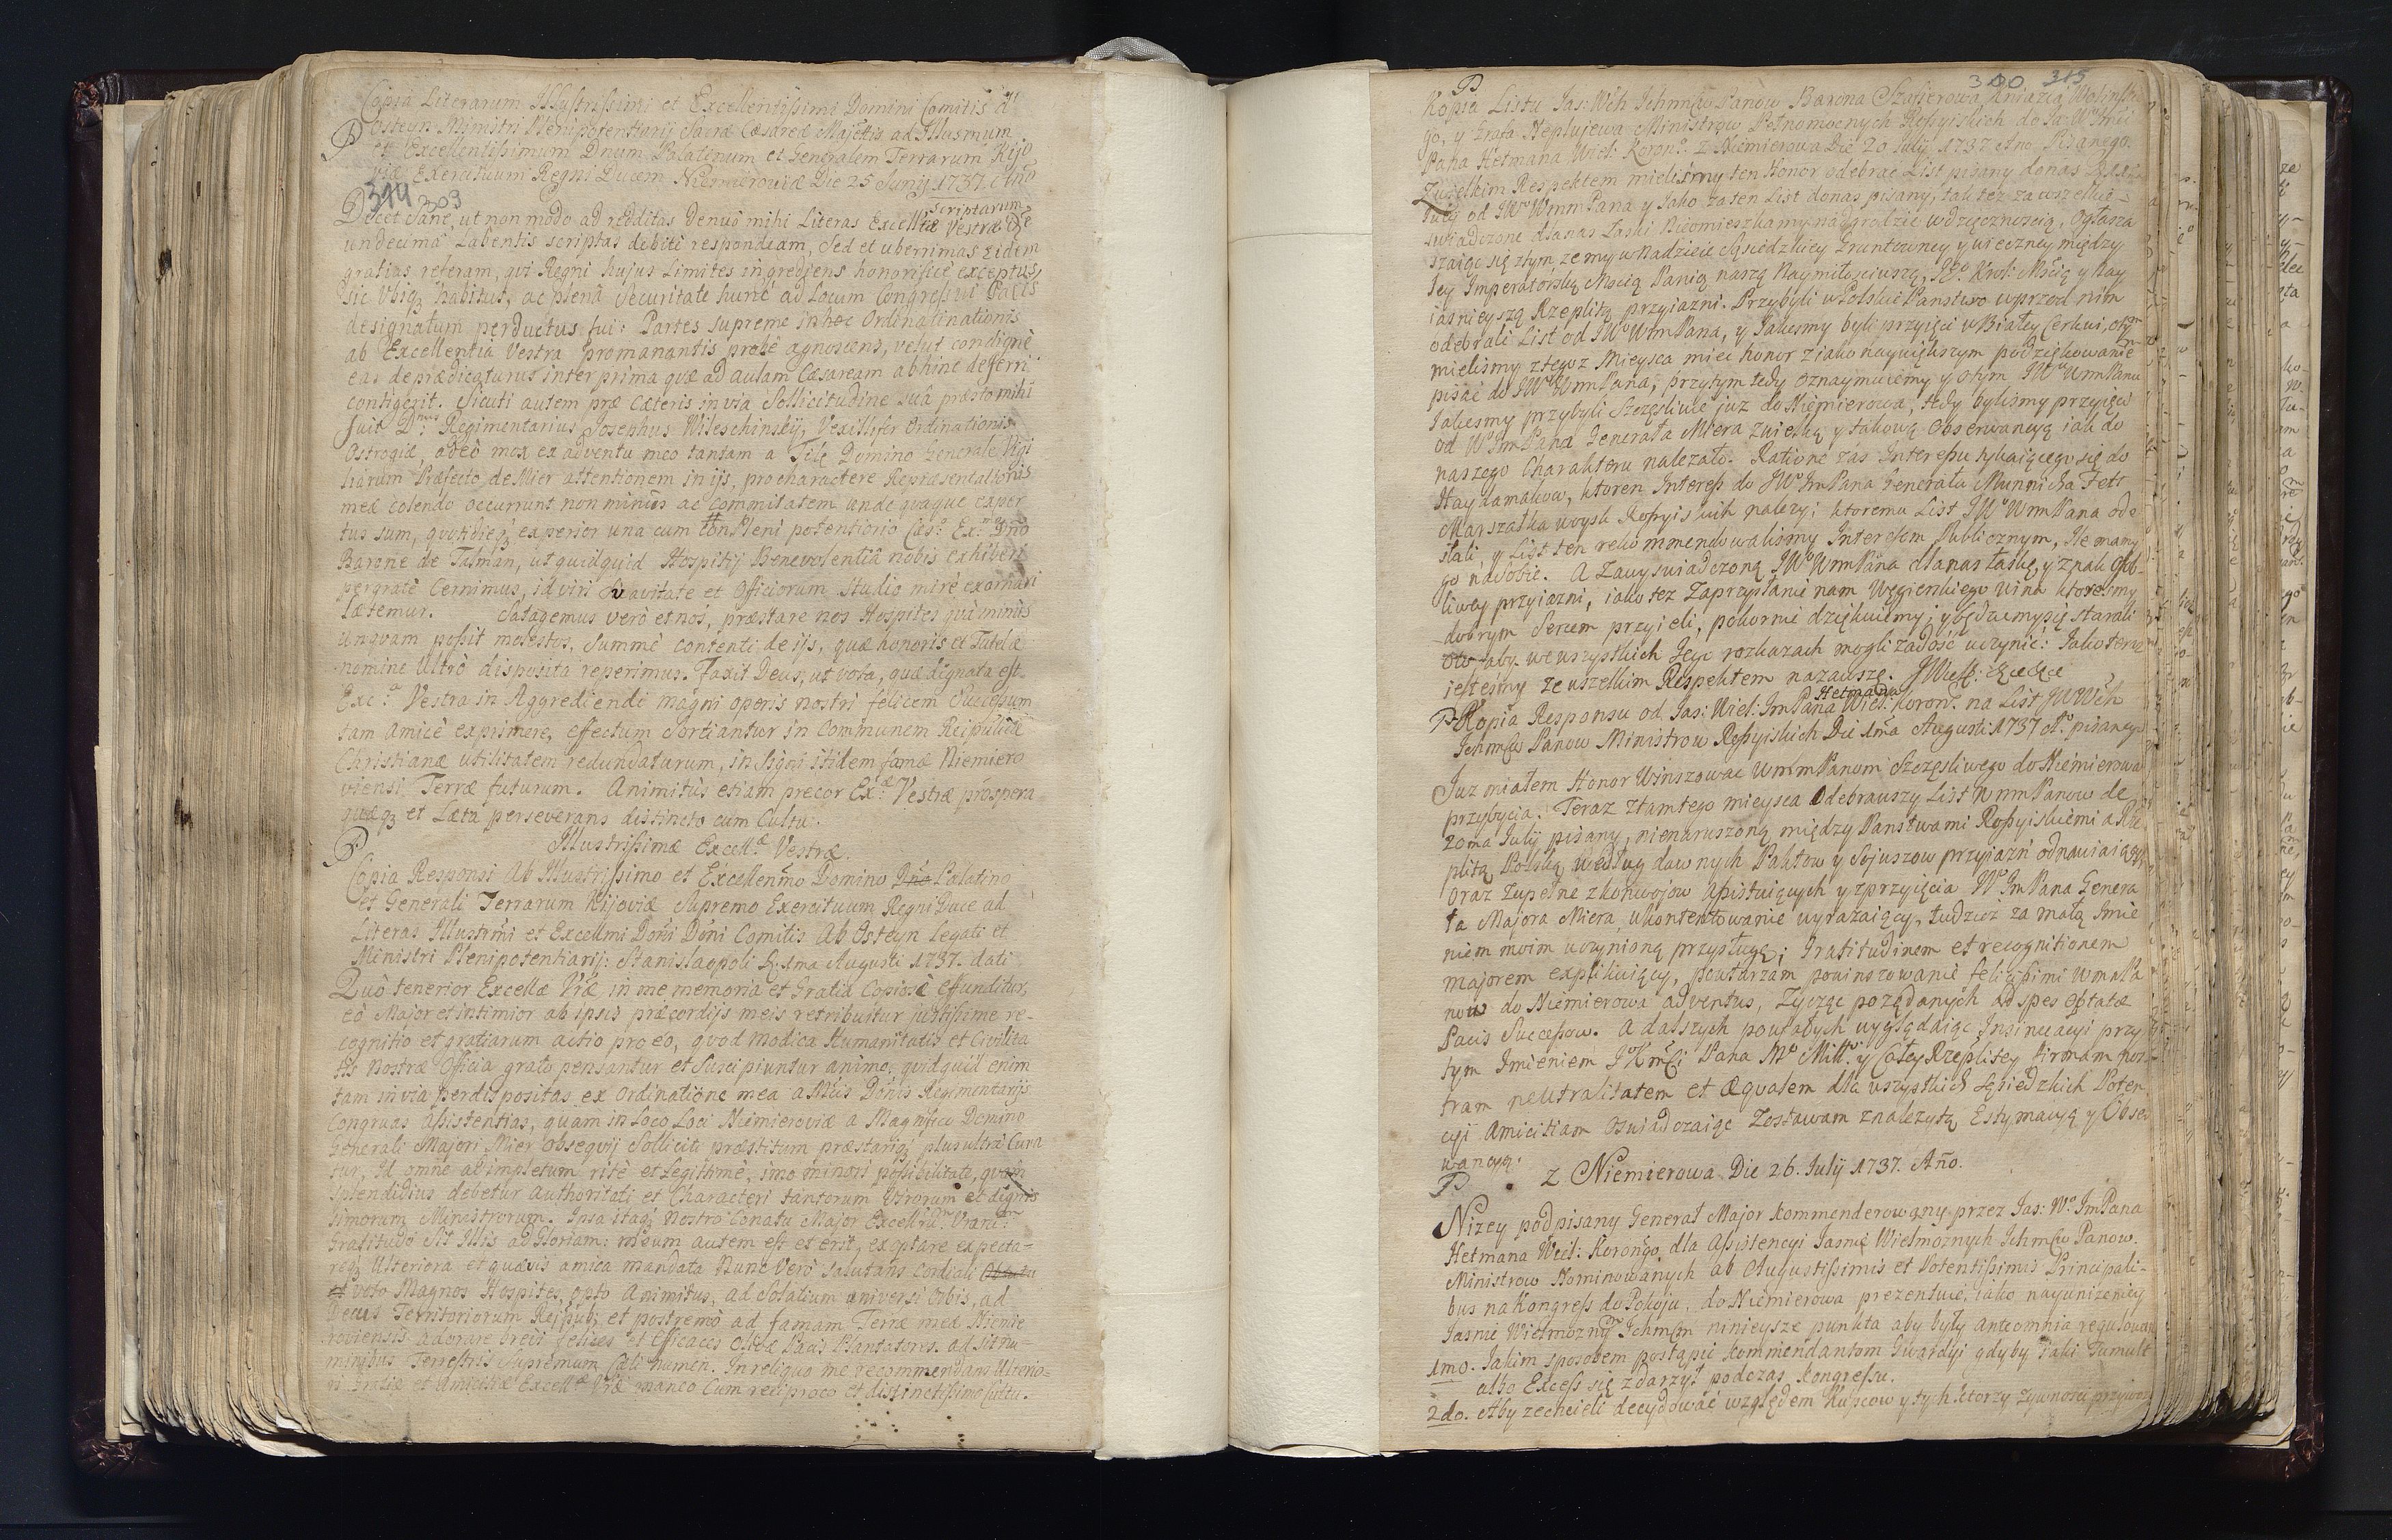 Copia Literarum Illustrissimi et Excellentissimi Domini Comitis d'
Osteyn Ministri Plenipotentiarij Sacrae Caesareae Majestis ad Illusmum
et Excellentissimum Dnum Palatinum et Generalem Terrarum Kijo
viae Exercituum Regni Ducem Niemieroviae Die 25 Junij 1737 Ano
314 303
Decet sane, ut non modo ad redditas denuo mihi Literas Excellae Vestrae de
scriptarum
undecima Labentis scriptas debite respondeam, Sed et uberrimas Eidem
gratias referam, qui Regni hujus Limites ingrediens honorifice exceptus,
sic ubiq habitus, ac plena Securitate hunc ad Locum Congressui Pacis
designatum perductus fui: Partes supreme in hoc Ordinatinationis
ab Excellentia Vestra promanantis probe agnoscens, velut condigne
eas depraedicaturus inter prima quae ad aulam Caesaream abhinc deferri
contigerit. Sicuti autem prae caeteris in via Sollicitudine sua praesto mihi
fuit Dnus Regimentarius Josephus Wileschinskij, Vexillifer Ordinationis
Ostrogiae, adeo mox ex adventu meo tantam a Tit: Domino Generale Vigi
liarum Praefecto de Mier attentionem in ijs, pro charactere Repraesentationis
meae colendo occurrunt non minus ac Commitatem undequaque exper
tus sum, quotidieq experior una cum Conpleni potentiorio Caes: Exmo Dno
Barone de Talman, ut quidquid Hospitij Benevolentia nobis exhiberi
pergrate Cernimus, id viri Suavitate et Officiorum Studio mire exornari
laetemur. Satagemus vero et nos, praestare nos Hospites qui minus
unquam possit molestos, summe contenti de ijs, quae honoris et Tutelae
nomine Ultro disposita reperimus. Faxit Deus, ut vota, quae dignata est
Exca Vestra in Aggrediendi magni operis nostri felicem Successum
tam amice exprimere, effectum Sortiantur in Communem Reipublicae
Christianae utilitatem redundaturum, insigni itidem famae Niemiero
viensi Terrae futurum. Animitus etiam precor Exae Vestrae prospera
quaeq et Laeta perseverans distincto cum Cultu.
Illustrissimae Excellae Vestrae.
Copia Responsi Ab Illustrissimo et Excellenmo Domino Dno Palatino
et Generali Terrarum Kijoviae Supremo Exercituum Regni Duce ad
Literas Illustrmi et Excellmi Domi Domi Comitis Ab Osteyn Legati et
Ministri Plenipotentiarij: Stanislaopoli D: 1ma Augusti 1737. dati
Quo tenerior Excellae Vrae in me memoria et Gratia Copiose effunditur,
eo Major et intimior ab ipsis praecordijs meis retribuitur justissime re-
cognitio et gratiarum actio pro eo, quod modica Humanitatis et Civilita
tis nostrae Officia grato pensantur et Suscipiuntur animo, quidquid enim
tam in via perdispositas ex Ordinatione mea a Mcis Dnis Regimentarijs
Congruas Assistentias, quam in Loco Loci Niemieroviae a Magnifico Domino
Generali Majori Mier obsequij Solliciti praestitum praestariq plus ultra Cura
tur, Id omne adimpletum rite et legitime, imo minori possibilitate, quam
Splendidius debetur Authoritati et Characteri tantorum Virorum et dignis
simorum Ministrorum. Ipsa itaq nostro Conatu Major Excellrum Vrarum
Gratitudo Sit Illis ad Gloriam: meum autem est et erit, exoptare expecta-
req Ulteriora et quaevis amica mandata Nunc Vero Salutans Cordiali
et voto Magnos Hospites, opto Animitus, ad Solatium universi Orbis, ad
Decus Territoriorum Reipub: et postremo ad famam Terrae meae Niemie
roviensis adorare brevi felices et Efficaces Olivae Pacis Plantatores ad sit nu-
minibus Terrestris Supremum Caeli numen. In reliquo me recommendans Ulterio-
ri Gratiae et Amicitiae Excellae Vrae maneo Cum reciproco et distinctissimo Cultu.
300 315
Kopia Listu Jas: Wch Ichmsciow Panow Barona Szafierowa, Kniazia Wolinskie
go, y Grafa Neplujewa Ministrow Pełnomocnych Rossyiskich do Ja: Wo Imci
Pana Hetmana Wiel: Korongo. z Niemierowa Die 20 July 1737 Ano Pisanego.
Z wszelkim Respektem mielismy ten Honor odebrac List pisany donas
od JWo WmmPana y Jako za ten List donas pisany, tak tez za wszelkie
swiadczone dlanas Łaski Nieomieszkamy nadgrodzic wdzięcznoscią, Ogłasza
szaiąc się ztym, ze my w Nadzieie Sąsiedzkiey Gruntowney y wieczney między
Jey Imperatorską Mscią Panią naszą Naymiłosciwszą, Jgo. Krol: Mscią y Nay
iasnieyszą Rzeplitą przyiazni. Przybyli w Polskie Panstwo uprzod nim
odebrali List od JWo WmPana, y Jakesmy byli przyięci w Białey Cerkwi, otym
mielismy ztegoz Mieysca miec honor z iako naywiększym podziękowanie
pisac do JWo WmPana, przytym tedy oznaymuiemy y otym JWo WmPanu
Jakesmy przybyli Szczęsliwie juz do Niemierowa, tedy bylismy przyięci
od Wo ImPana Generała Miera zwielką y takową Obserwancyą iak do
naszego Charakteru nalezało. Ratione zas Interessu tykaiącego się do
Haydamakow, ktoren Interess do JWo ImPana Generała Munnicha Felt
Marszałka woysk Rossyiskich nalezy; ktoremu List JWo WmPana ode
słali y List ten rekommendowalismy Interesem Publicznym, Ile mamy
go nasobie. A Zawyswiadczoną JWo WmPana dlanas łaskę, y znaki
liwey przyiazni, iako tez Zaprzysłanie nam Węgierskiego wina ktoresmy
dobrym Sercem przyieli, pokornie dziękuiemy; y będziemysię starali
oto aby wewszystkich Jego rozkazach mogli zadosc uczynic: Jako teraz
jestesmy ze wszelkim Respektem nazawsze. JWielk:
Kopia Responsu od Jas: Wiel: ImPana Hetmana Wiel: Koron. na List JWWch
Ichmsciow Panow Ministrow Rossyiskich Die 1ma Augusti 1737 Ao. pisanego
Juz miałem Honor Winszowac WmmPanom Szczęsliwego do Niemierowa
przybycia. Teraz ztamtego mieysca Odebrawszy List WmmPanow de
20ma July pisany, nienaruszoną między Panstwami Rossyiskiemi a Rze
plitą Polską według dawnych Paktow y Sojuszow przyiazn odnawiaiący,
oraz zupełne z konwojow Assistuiących y z przyięcia Wo ImPana Genera
ła Majora Miera, ukontentowanie wyrazaiący, tudziez za małą Imie
niem moim uczynioną przysługę; Gratitudinem et recognitionem
majorem explikuiący, powtarzam powinszowanie felicissimi WmmPa
now do Niemierowa adventus, zycząc pożądanych ad spes Optatae
Pacis Successow. A dalszych poufałych wyglądaiąc Insinuacyi przy
tym Imieniem JoKMsci Pana Mo Mił: y Całey Rzeplitey firmam nos
tram neutralitatem et aequalem dla wszystkich Sąsiedzkich Poten
cyi Amicitiam oswiadczaiąc Zostawam znalezytą Estymacyą y Obser
wancyą.
Z Niemierowa Die 26. July 1737. Ano.
Nizey podpisany Generał Major Kommenderowany przez Jas: Wo ImPana
Hetmana Wiel: Korongo dla Assistencyi Jasnie Wielmoznych Ichmsciow Panow
Ministrow Nominowanych ab Augustissimis et Potentissimis Principali-
bus na Kongress do Pokoju, do Niemierowa prezentuie, iako nayunizeniey
Jasnie Wielmoznym Ichmsciom ninieysze punkta aby były ante omnia regulowane
1mo. Jakim sposobem postąpic Kommendantom Gwardyi gdyby Jaki Tumult
albo Excess się zdarzył podczas Kongressu.
2do. Aby zechcieli decydowac względem Kupcow y tych ktorzy zywnosci przywozą